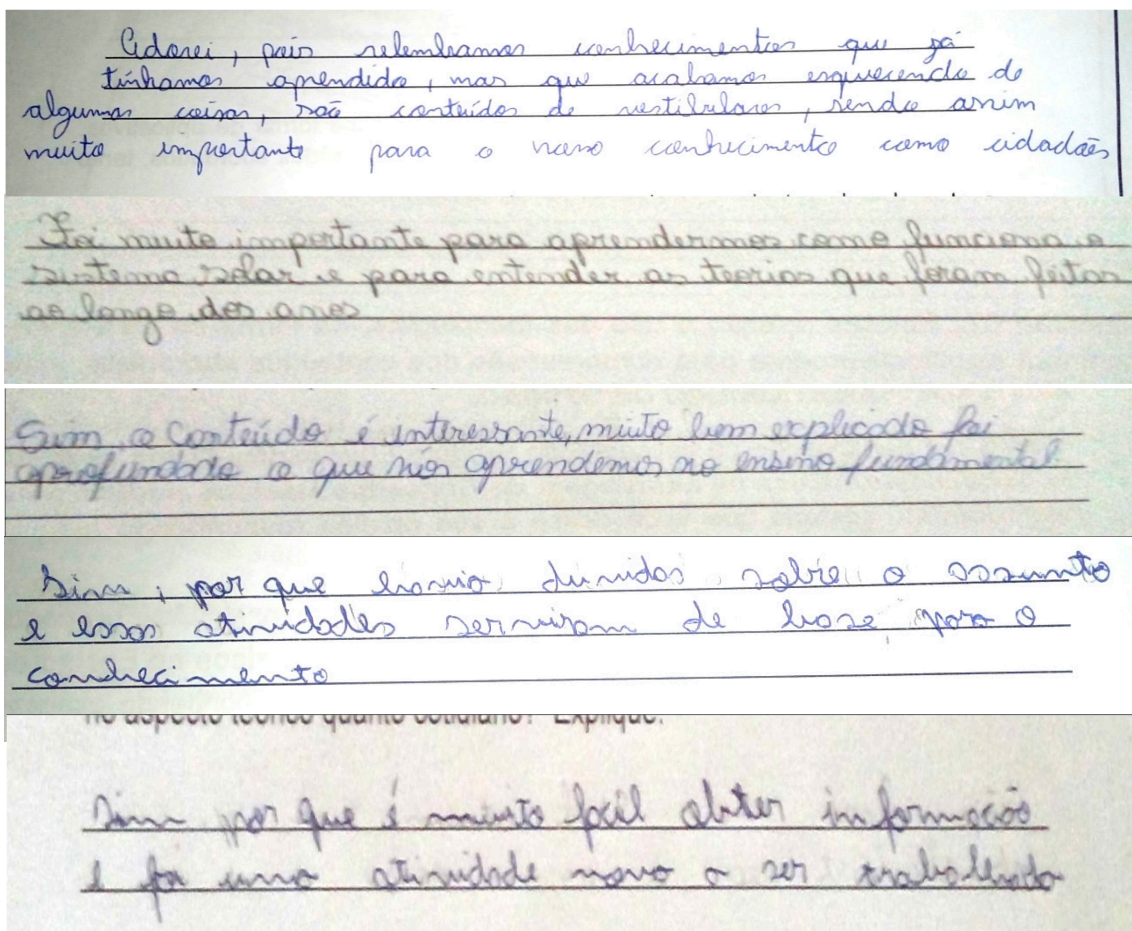 Adorei, pois relembramos conhecimentos que já
tínhamos aprendido, mas que acabamos esquecendo de
algumas coisas, são conteúdos de vestibulares, sendo assim
muito importante para o nosso conhecimento como cidadães
Foi muito importante para aprendermos como funciona o
sistema solar e para entender as teorias que foram feitas
ao longo dos anos
Sim o Conteúdo é interessante, muito bem explicado foi
aprofundado o que nós aprendemos no ensino fundamental.
Sim, por que havia dúvidas sobre o assunto
e essas atividades serviram de base para o
conhecimento
no aspecto teórico quanto cotidiano? Explique.
Sim por que é muito fácil obter informação
e foi uma atividade nova a ser trabalhada